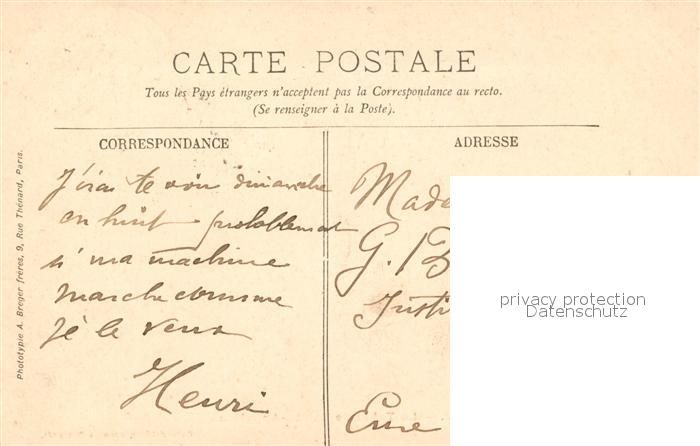 CARTE POSTALE
Tous les Pays étrangers n'acceptent pas la Correspondance au recto.
(Se renseigner à la Poste).
CORRESPONDANCE
J'irai te voir dimanche
en huit probablement
si ma machine
marche comme
je le veux
Henri
ADRESSE
Mada
G. B
Instit
Eure
privacy protection
Datenschutz
Phototypie A. Breger frères, 9, Rue Thénard, Paris.